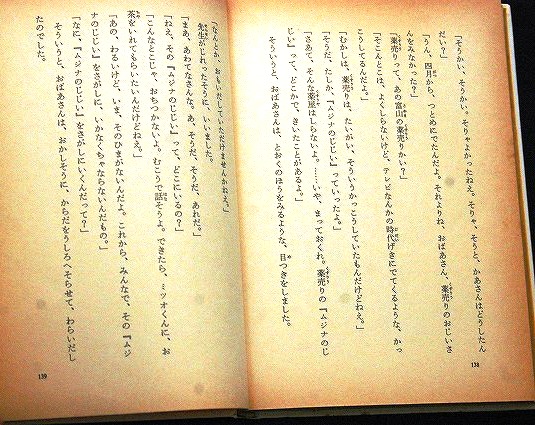 「そうかい、そうかい。そりゃよかったねえ。そりゃ、そうと、かあさんはどうしたん
だい？」
「うん、四月から、つとめにでたんだよ。それよりね、おばあさん、薬売りのおじいさ
んをみなかった？」
「薬売りって、あの富山の薬売りかい？」
「そこんとこは、よくしらないけど、テレビなんかの時代げきにでてくるような、かっ
こうしてるんだよ。」
「むかしは、薬売りは、たいがい、そういうかっこうしていたもんだけどねえ。」
「そうだ、たしか、『ムジナのじじい』っていったよ。」
「さあて、そんな薬屋はしらないよ。……いや、まっておくれ。薬売りの『ムジナのじ
じい』って、どこかで、きいたことがあるよ。」
そういうと、おばあさんは、とおくのほうをみるような、目つきをしました。
138
「なんとか、おもいだしていただけませんかねえ。」
先生がじれったそうに、いいました。
「まあ、あわてなさんな。あ、そうだ、そうだ、あれだ。」
「ねえ、その『ムジナのじじい』って、どこにいるの？」
「こんなとこじゃ、おちつかないよ。むこうで話そうよ。できたら、ミツオくんに、お
茶をいれてもらいたいんだけどねえ。」
「あの、わるいけど、いま、そのひまがないんだよ。これから、みんなで、その『ムジ
ナのじじい』をさがしに、いかなくちゃならないんだもの。」
「なに、『ムジナのじじい』をさがしにいくんだって？」
そういうと、おばあさんは、おかしそうに、からだをうしろへそらせて、わらいだし
たのでした。
139